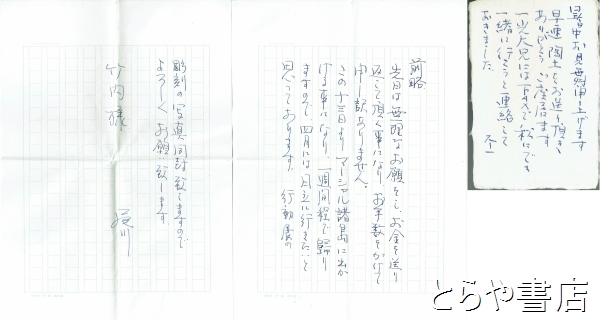 暑中お見舞申し上げます
早速陶土をお送り頂き
ありがとうございます
大兄には 私にでも
一緒に行こうと連絡して
おきました。
前略
先日は無理なお願をし、お金を送り
返して頂く事になり、お手数をかけて
申し訳ありません。
この十三日より、マーシャル諸島に出か
ける事になり、一週間程で帰り
ますので、四月には日立に行きたいと
思っております。 行動展の
彫刻の写真同封致しますので
よろしくお願い致します。
竹内様
とらや書店